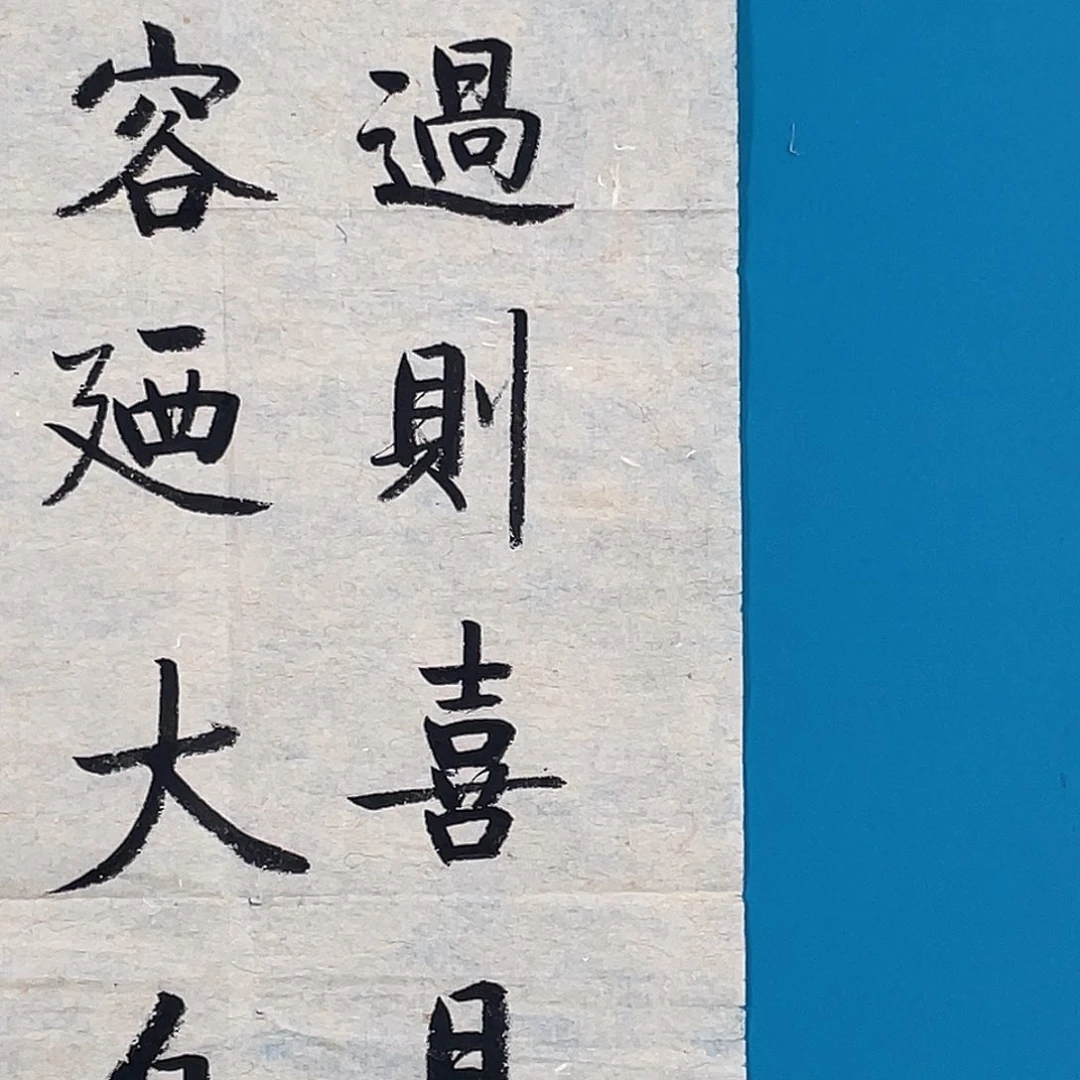 過則喜
容廼大